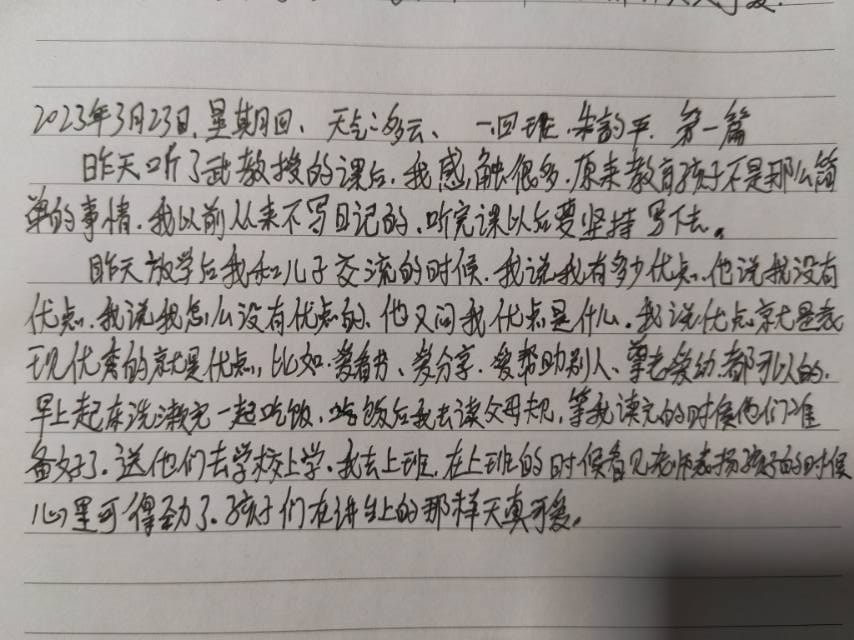 2023年3月23日、星期四、天气:多云、一.四班.朱韵平.第一篇
昨天听了武教授的课后.我感触很多.原来教育孩子不是那么简
单的事情.我以前从来不写日记的.听完课以后要坚持写下去。
昨天放学后我和儿子交流的时候.我说我有多少优点.他说我没有
优点.我说我怎么没有优点的、他又问我优点是什么.我说优点就是表
现优秀的就是优点,比如.爱看书、爱分享.爱帮助别人、尊老爱幼.都可以的.
早上起床洗漱完一起吃饭.吃饭后我去读父母规,等我读完的时候他们准
备好了.送他们去学校上学.我去上班.在上班的时候看见老师表扬孩子的时候
心里可得劲了.孩子们在讲台上的那样天真可爱。